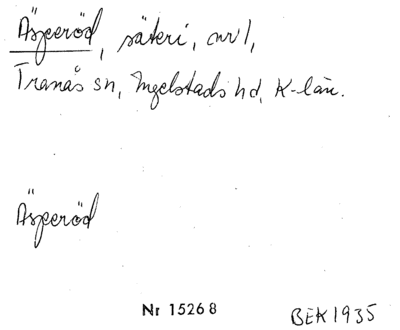 Äsperöd, säteri, nr 1,
Tranås sn, Ingelstads hd, K-län.
Äsperöd
Nr 15268
BEK1935